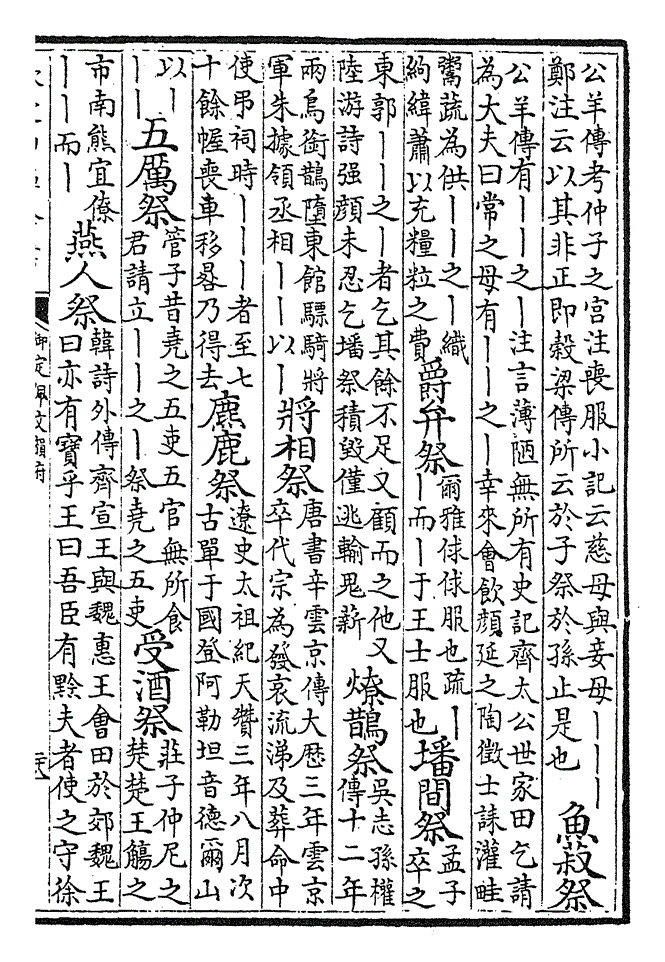 公羊傳考仲子之宮注喪服小記云慈母與妾母丨丨丨
鄭注云以其非正即穀梁傳所云於子祭於孫止是也
魚菽祭
公羊傳有丨丨之丨注言薄陋無所有史記齊太公世家田乞請
為大夫曰常之母有丨丨之丨幸來會飲顔延之陶徵士誄灌畦
鬻蔬為供丨丨之丨織
絇緯蕭以充糧粒之費
爵弁祭
爾雅俅俅服也疏丨
丨而丨于王士服也
墦間祭
孟子
卒之
東郭丨丨之丨者乞其餘不足又顧而之他又
陸游詩强顔未忍乞墦祭積毀僅逃輸鬼薪
燎鵲祭
吳志孫權
傳十二年
兩烏銜鵲墮東館驃騎將
軍朱據領丞相丨丨以丨
將相祭
唐書辛雲京傳大厯三年雲京
卒代宗為發哀流涕及葬命中
使弔祠時丨丨丨者至七
十餘幄喪車移晷乃得去
麃鹿祭
遼史太祖紀天贊三年八月次
古單于國登阿勒坦音德爾山
以丨
丨丨
五厲祭
管子昔堯之五吏五官無所食
君請立丨丨之丨祭堯之五吏
受酒祭
莊子仲尼之
楚楚王觴之
市南熊宜僚
丨丨而丨
燕人祭
韓詩外傳齊宣王與魏惠王會田於郊魏王
曰亦有寶乎王曰吾臣有黔夫者使之守徐
御定佩文韻府